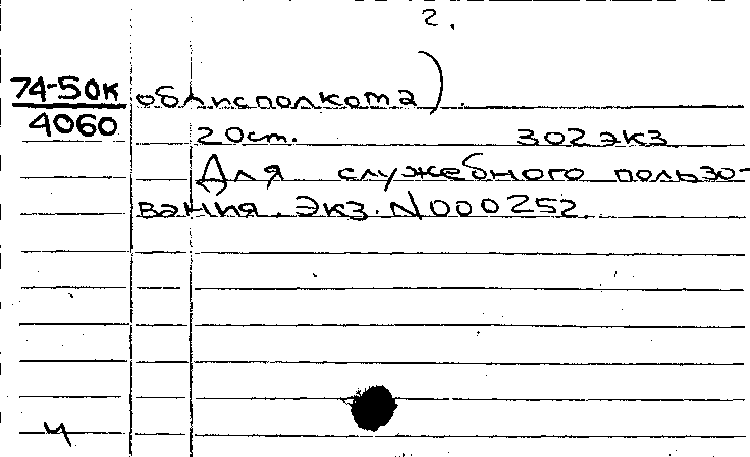 2.
74-50к
4060
облисполкома).
20 ст. 302 экз
Для служебного пользо-
вания. Экз. N000252.
ч